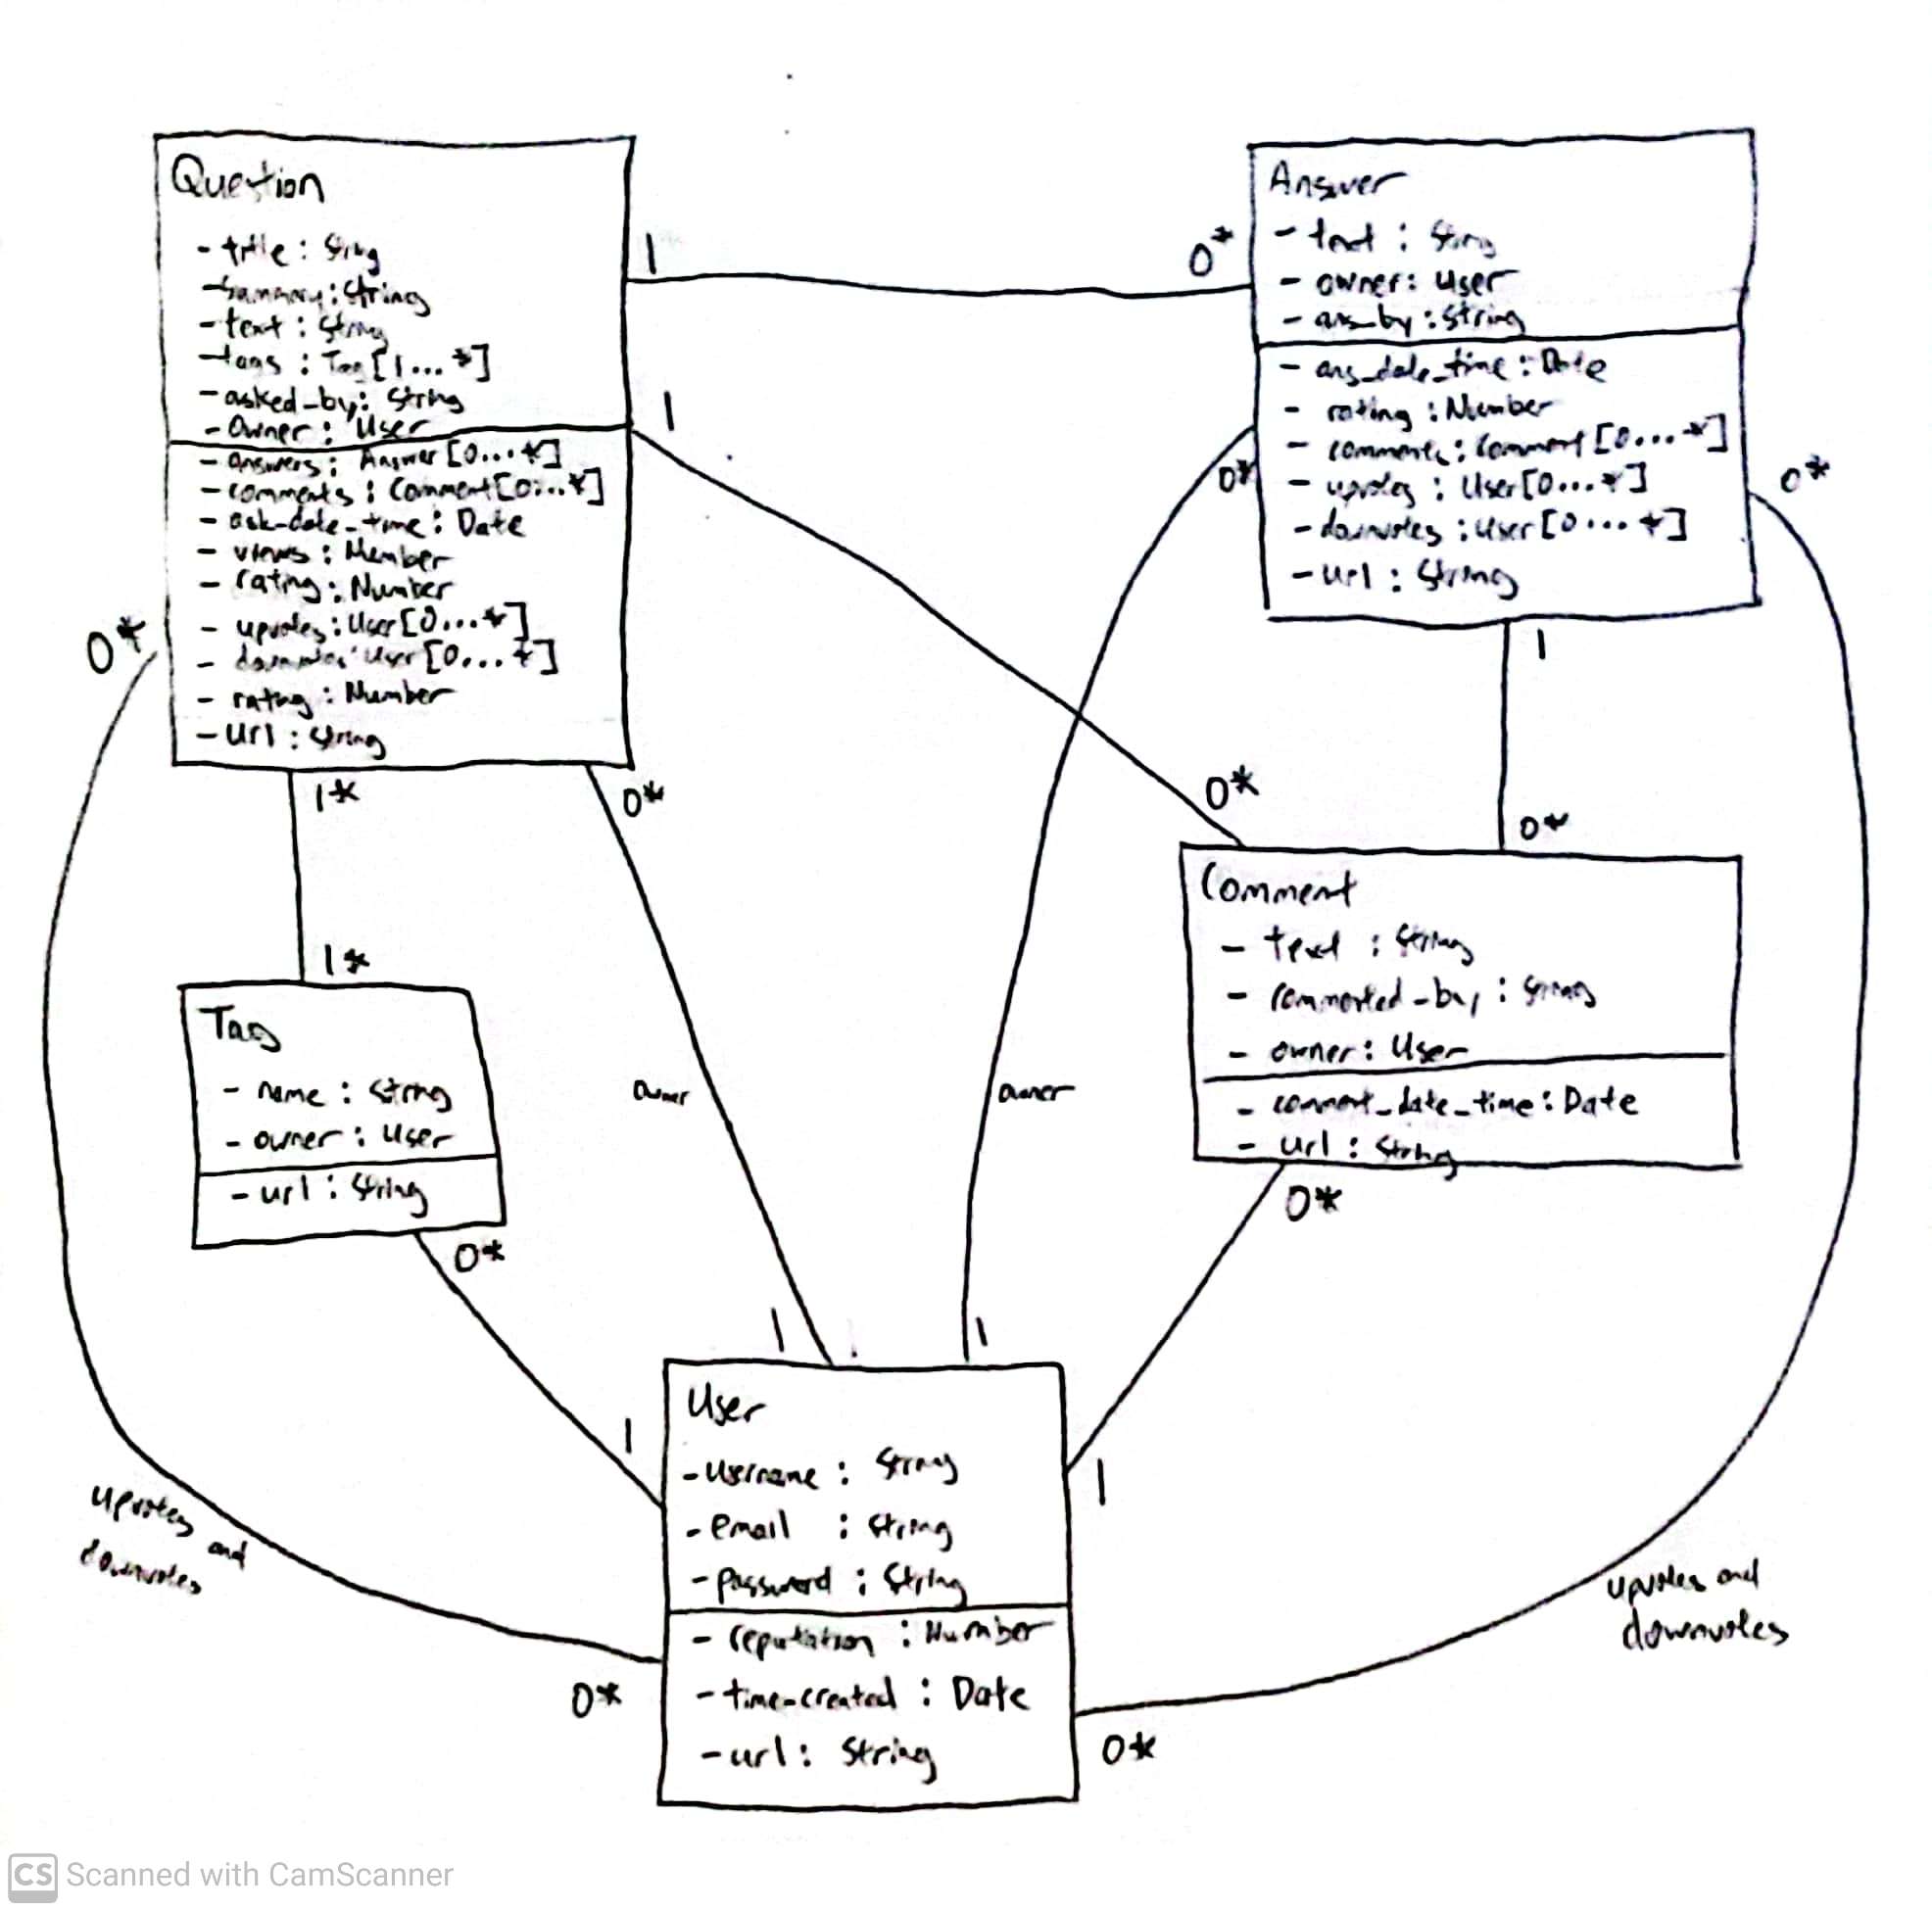 Question
- title : String
- Summary : String
- text : String
- tags : Tag [1...*]
- asked_by : String
- Owner : User
- answers : Answer [0...*]
- comments : Comment [0...*]
- ask_date_time : Date
- views : Number
- rating : Number
- upvotes : User [0...*]
- downvotes : User [0...*]
- rating : Number
- url : String
1
0*
1
0*
0*
1*
1*
0*
Answer
- text : String
- owner : User
- ans_by : String
- ans_date_time : Date
- rating : Number
- comments : Comment [0...*]
- upvotes : User [0...*]
- downvotes : User [0...*]
- url : String
0*
0*
1
0*
Tag
- name : String
- owner : User
- url : String
0*
1
owner
1
owner
1
Comment
- text : String
- commented_by : String
- owner : User
- comment_date_time : Date
- url : String
0*
1
User
- username : String
- email : String
- password : String
- reputation : Number
- time_created : Date
- url : String
upvotes and
downvotes
0*
upvotes and
downvotes
0*
CS Scanned with CamScanner